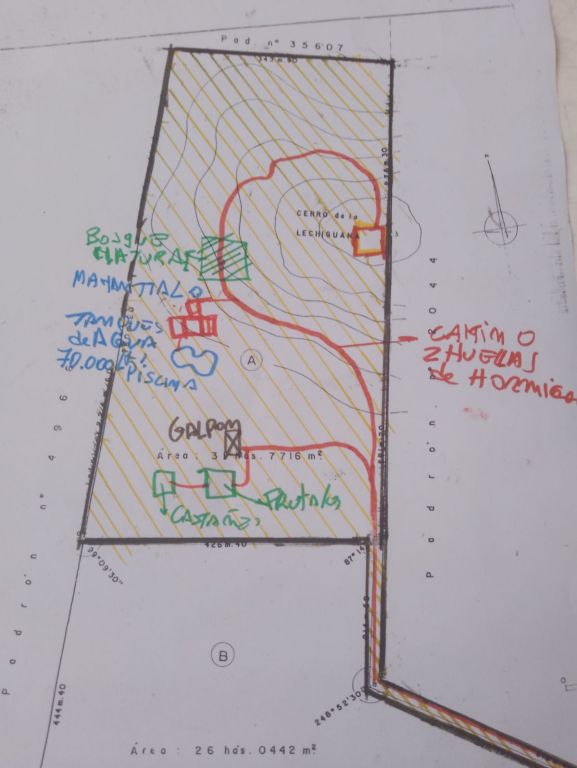 Pad. nº 35607
343 m.90
CERRO de la
LECHIGUANA
BOSQUE
NATURAL
MANANTIAL
TANQUES
de AGUA
70.000 lt!
PISCINA
CAMINO
2 HUELLAS
de HORMIGO
A
GALPON
Área: 3 hás. 7716 m²
Frutales
CASTAÑOS
426 m.40
99º09'30"
87º14'
Padrón nº 496
Padrón
804
B
444 m.40
248º52'30"
Área : 26 hás. 0442 m²